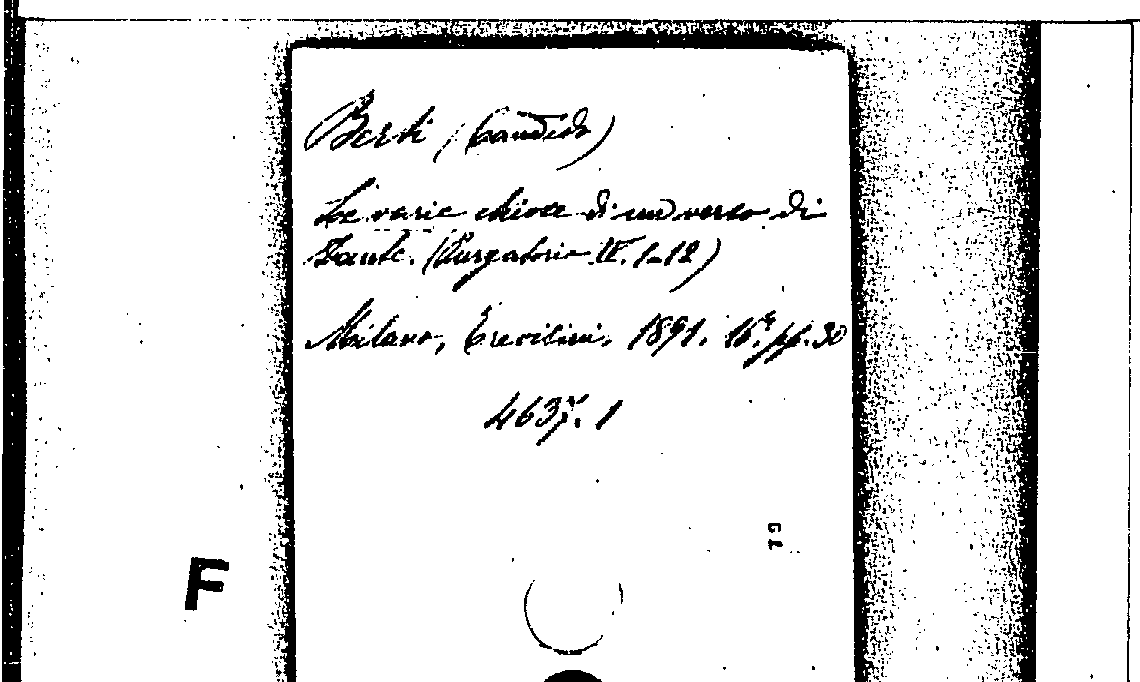 Berti (Candido)
Le varie chiose di un verso di
Dante. (Purgatorio IX. 1-12)
Milano, 1891. 16° pp. 30
4637. 1
F